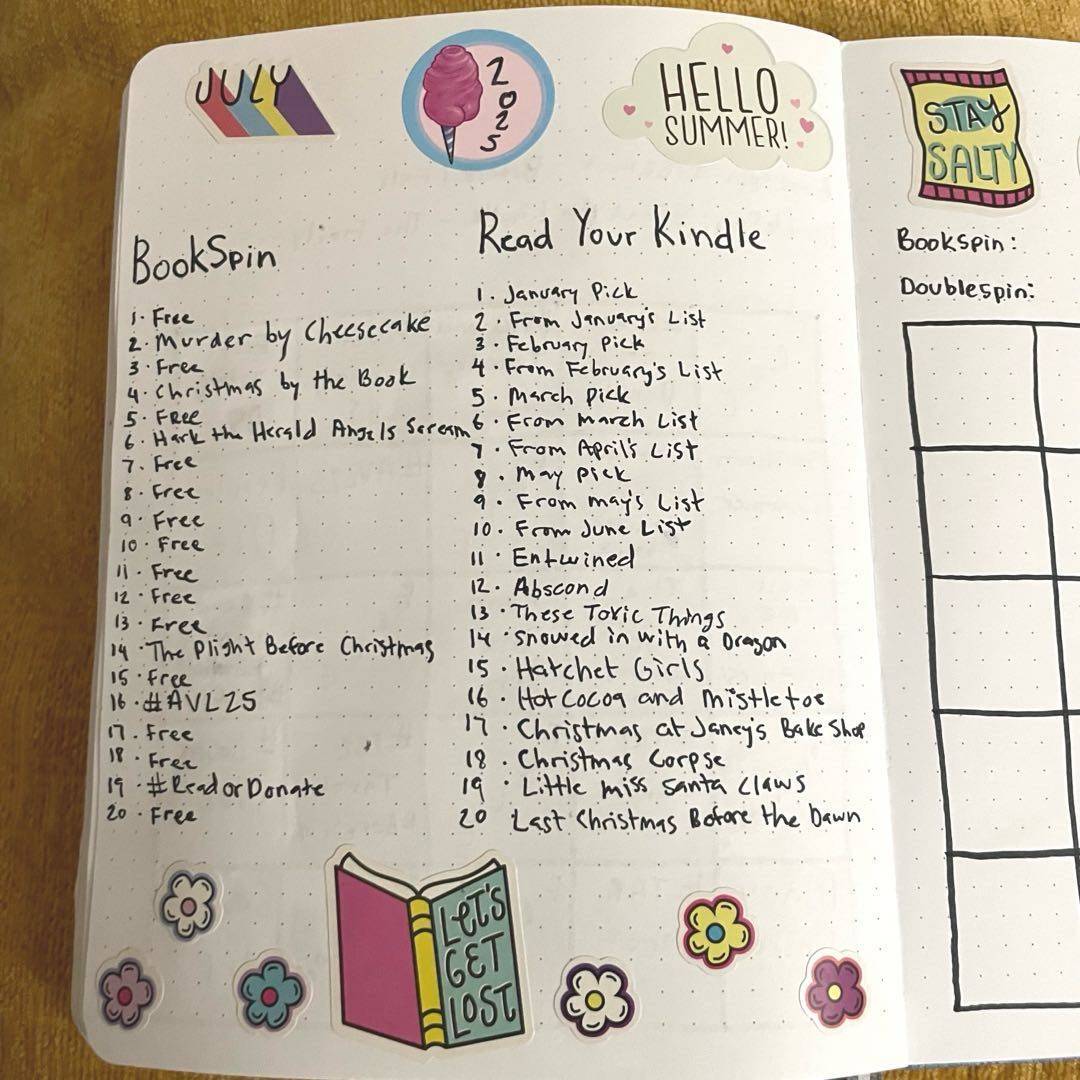 JULY
2025
HELLO
SUMMER!
STAY
SALTY
BookSpin
1. Free
2. Murder by Cheesecake
3. Free
4. Christmas by the Book
5. Free
6. Hark the Herald Angels Scream
7. Free
8. Free
9. Free
10. Free
11. Free
12. Free
13. Free
14. The Plight Before Christmas
15. Free
16. #AVL25
17. Free
18. Free
19. #ReadorDonate
20. Free
Read Your Kindle
1. January Pick
2. From January's List
3. February Pick
4. From February's List
5. March Pick
6. From March List
7. From April's List
8. May Pick
9. From May's List
10. From June List
11. Entwined
12. Abscond
13. These Toxic Things
14. Snowed in with a Dragon
15. Hatchet Girls
16. Hot Cocoa and Mistletoe
17. Christmas at Janey's Bake Shop
18. Christmas Corpse
19. Little Miss Santa Claws
20 Last Christmas Before the Dawn
LET'S
GET
LOST
Bookspin:
Doublespin: